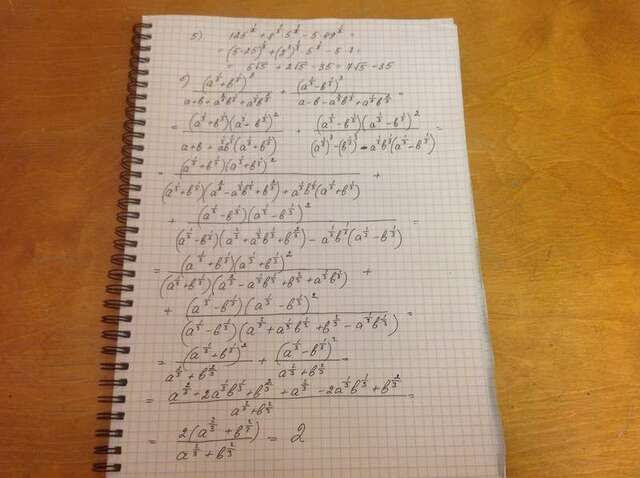 5) 125^{1/2} + 8^{1/3} 5^{1/2} - 5·49^{1/2} =
= (5·25)^{1/2} + (2^3)^{1/3} 5^{1/2} - 5·7 =
= 5√5 + 2√5 - 35 = 7√5 - 35
(a^{1/3}+b^{1/3})^3 / (a+b+a^{2/3}b^{1/3}+a^{1/3}b^{2/3}) + (a^{1/3}-b^{1/3})^3 / (a-b-a^{2/3}b^{1/3}+a^{1/3}b^{2/3}) =
= (a^{1/3}+b^{1/3})(a^{1/3}-b^{1/3})^2 / (a+b+a^{1/3}b^{1/3}(a^{1/3}+b^{1/3})) + (a^{1/3}-b^{1/3})(a^{1/3}-b^{1/3})^2 / ((a^{1/3})^3-(b^{1/3})^3-a^{1/3}b^{1/3}(a^{1/3}-b^{1/3})) =
= (a^{1/3}+b^{1/3})(a^{1/3}+b^{1/3})^2 / ((a^{1/3}+b^{1/3})(a^{2/3}-a^{1/3}b^{1/3}+b^{2/3})+a^{1/3}b^{1/3}(a^{1/3}+b^{1/3})) +
+ (a^{1/3}-b^{1/3})(a^{1/3}-b^{1/3})^2 / ((a^{1/3}-b^{1/3})(a^{2/3}+a^{1/3}b^{1/3}+b^{2/3})-a^{1/3}b^{1/3}(a^{1/3}-b^{1/3})) =
= (a^{1/3}+b^{1/3})(a^{1/3}+b^{1/3})^2 / ((a^{1/3}+b^{1/3})(a^{2/3}-a^{1/3}b^{1/3}+b^{2/3}+a^{1/3}b^{1/3})) +
+ (a^{1/3}-b^{1/3})(a^{1/3}-b^{1/3})^2 / ((a^{1/3}-b^{1/3})(a^{2/3}+a^{1/3}b^{1/3}+b^{2/3}-a^{1/3}b^{1/3})) =
= (a^{1/3}+b^{1/3})^2 / (a^{2/3}+b^{2/3}) + (a^{1/3}-b^{1/3})^2 / (a^{2/3}+b^{2/3}) =
= (a^{2/3}+2a^{1/3}b^{1/3}+b^{2/3}+a^{2/3}-2a^{1/3}b^{1/3}+b^{2/3}) / (a^{2/3}+b^{2/3}) =
= 2(a^{2/3}+b^{2/3}) / (a^{2/3}+b^{2/3}) = 2